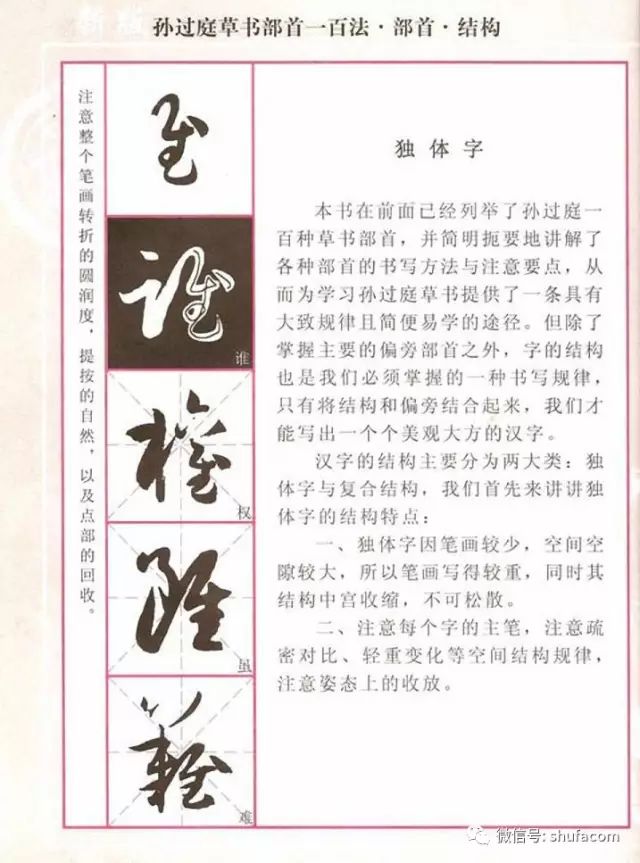 新版
孙过庭草书部首一百法·部首·结构
注意整个笔画转折的圆润度，提按的自然，以及点部的回收。
谁
权
虽
难
独体字
本书在前面已经列举了孙过庭一
百种草书部首，并简明扼要地讲解了
各种部首的书写方法与注意要点，从
而为学习孙过庭草书提供了一条具有
大致规律且简便易学的途径。但除了
掌握主要的偏旁部首之外，字的结构
也是我们必须掌握的一种书写规律，
只有将结构和偏旁结合起来，我们才
能写出一个个美观大方的汉字。
汉字的结构主要分为两大类：独
体字与复合结构，我们首先来讲讲独
体字的结构特点：
一、独体字因笔画较少，空间空
隙较大，所以笔画写得较重，同时其
结构中宫收缩，不可松散。
二、注意每个字的主笔，注意疏
密对比、轻重变化等空间结构规律，
注意姿态上的收放。
微信号: shufacom